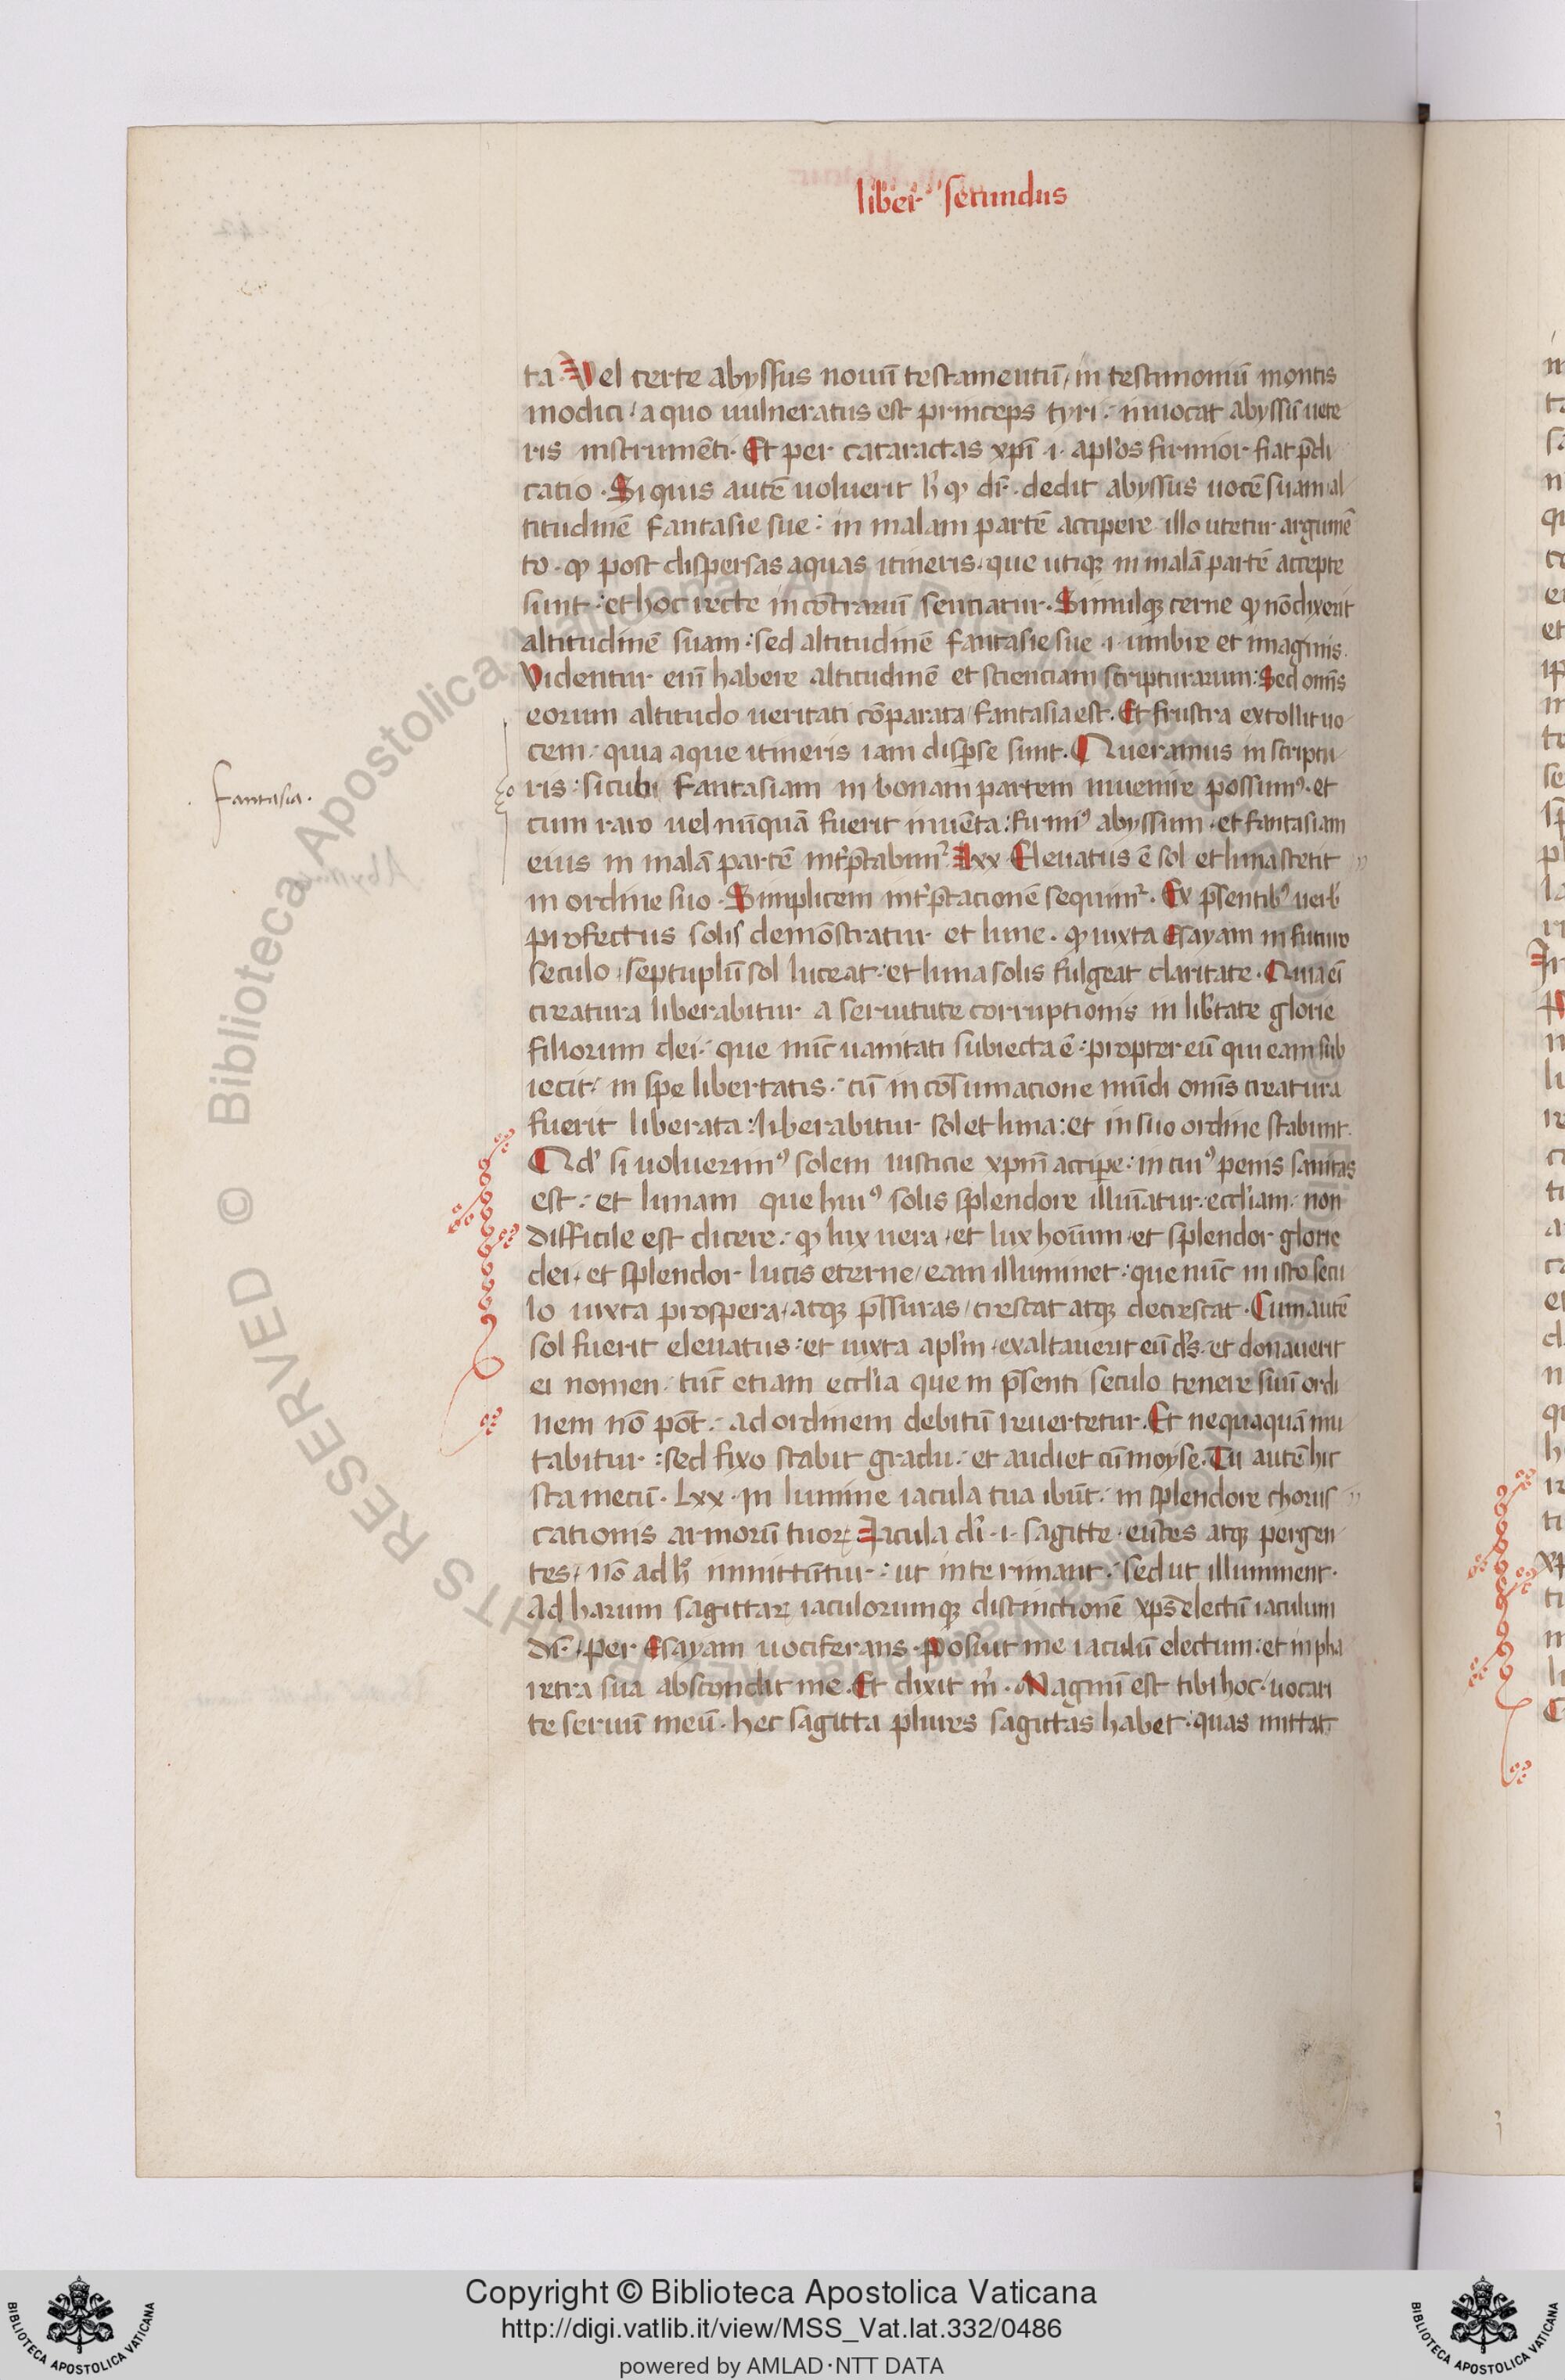 liber secundus
ta. Vel certe abyssus nouū testamentū, in testimoniū montis
modici, a quo uulneratus est princeps tyri: inuocat abyssū uete
ris instrumēti. Et per cataractas xp̄i .i. apl'os firmior fiat p̄di
catio. Si quis autē uoluerit h̄ ꝙ dr̄. dedit abyssus uocē suam al
titudinē fantasie sue: in malam partē accipere illo utetur argumē
to. ꝙ post dispersas aquas itineris, que utiqꝫ in malā partē accepte
sunt: et hoc recte in cōtrariū senciatur. Simulqꝫ cerne ꝙ nō dixerit
altitudinē suam: sed altitudinē fantasie sue .i. umbre et imaginis.
Videntur eni habere altitudinē et scienciam scripturarum: Sed omīs
eorum altitudo ueritati cōparata fantasia est. Et frustra extollit uo
cem: quia aque itineris iam disꝑse sunt. Queramus in scriptu
fantasia.
ris: sicubi fantasiam in bonam partem inuenire possumꝰ. et
cum raro uel nūquā fuerit inuēta: furimꝰ abyssum. et fantasiam
eius in malā partē int'p̄tabim̄. Lxx Eleuatus ē sol et luna stetit
in ordine suo. Simplicem int'p̄tacionē sequim̄. Ex p̄sentibꝰ uerb'
profectus solis demōstratur et lune. ꝙ iuxta Esayam in futuro
seculo, septuplū sol luceat: et luna solis fulgeat claritate. Quia eī
creatura liberabitur a seruitute corruptionis in lib'tate glorie
filiorum dei: que nūc uanitati subiecta ē: propter eū qui eam sub
iecit, in spe libertatis: cū in cōsumacione mūdi omīs creatura
fuerit liberata: liberabitur sol et luna: et in suo ordine stabunt.
Qd' si uoluerimꝰ solem iusticie xpm̄ accipe: in cuiꝰ penis sanitas
est: et lunam que huiꝰ solis splendore illuīatur: eccl'iam: non
difficile est dicere: ꝙ lux uera, et lux hoīum, et splendor glorie
dei, et splendor lucis eterne, eam illuminet: que nūc in isto secu
lo iuxta prospera, atqꝫ p̄ssuras, crescat atqꝫ decrescat. Cum autē
sol fuerit eleuatus: et iuxta apl'm, exaltauerit eū d's. et donauerit
ei nomen. tūc etiam eccl'ia que in p̄senti seculo tenere suū ordi
nem nō pōt: ad ordinem debitū reuertetur. Et nequaquā mu
tabitur: sed fixo stabit gradu: et audiet cū moyse. Tu autē hic
sta mecū. Lxx. In lumine iacula tua ibūt: in splendore chorus
cationis armorū tuoꝝ. Iacula di' .i. sagitte. eūtes atqꝫ pergen
tes, nō ad h' inmittūtur: ut interimant: sed ut illuminent.
Ad harum sagittaꝝ iaculorumqꝫ distinctionē xp̄s electū iaculum
dr̄. per Esayam uociferans. Posuit me iaculū electum: et in pha
retra sua abscondit me. Et dixit m'. Magnū est tibi hoc. uocari
te seruū meū. hec sagitta plures sagittas habet: quas mittat.
Copyright © Biblioteca Apostolica Vaticana
http://digi.vatlib.it/view/MSS_Vat.lat.332/0486
powered by AMLAD·NTT DATA